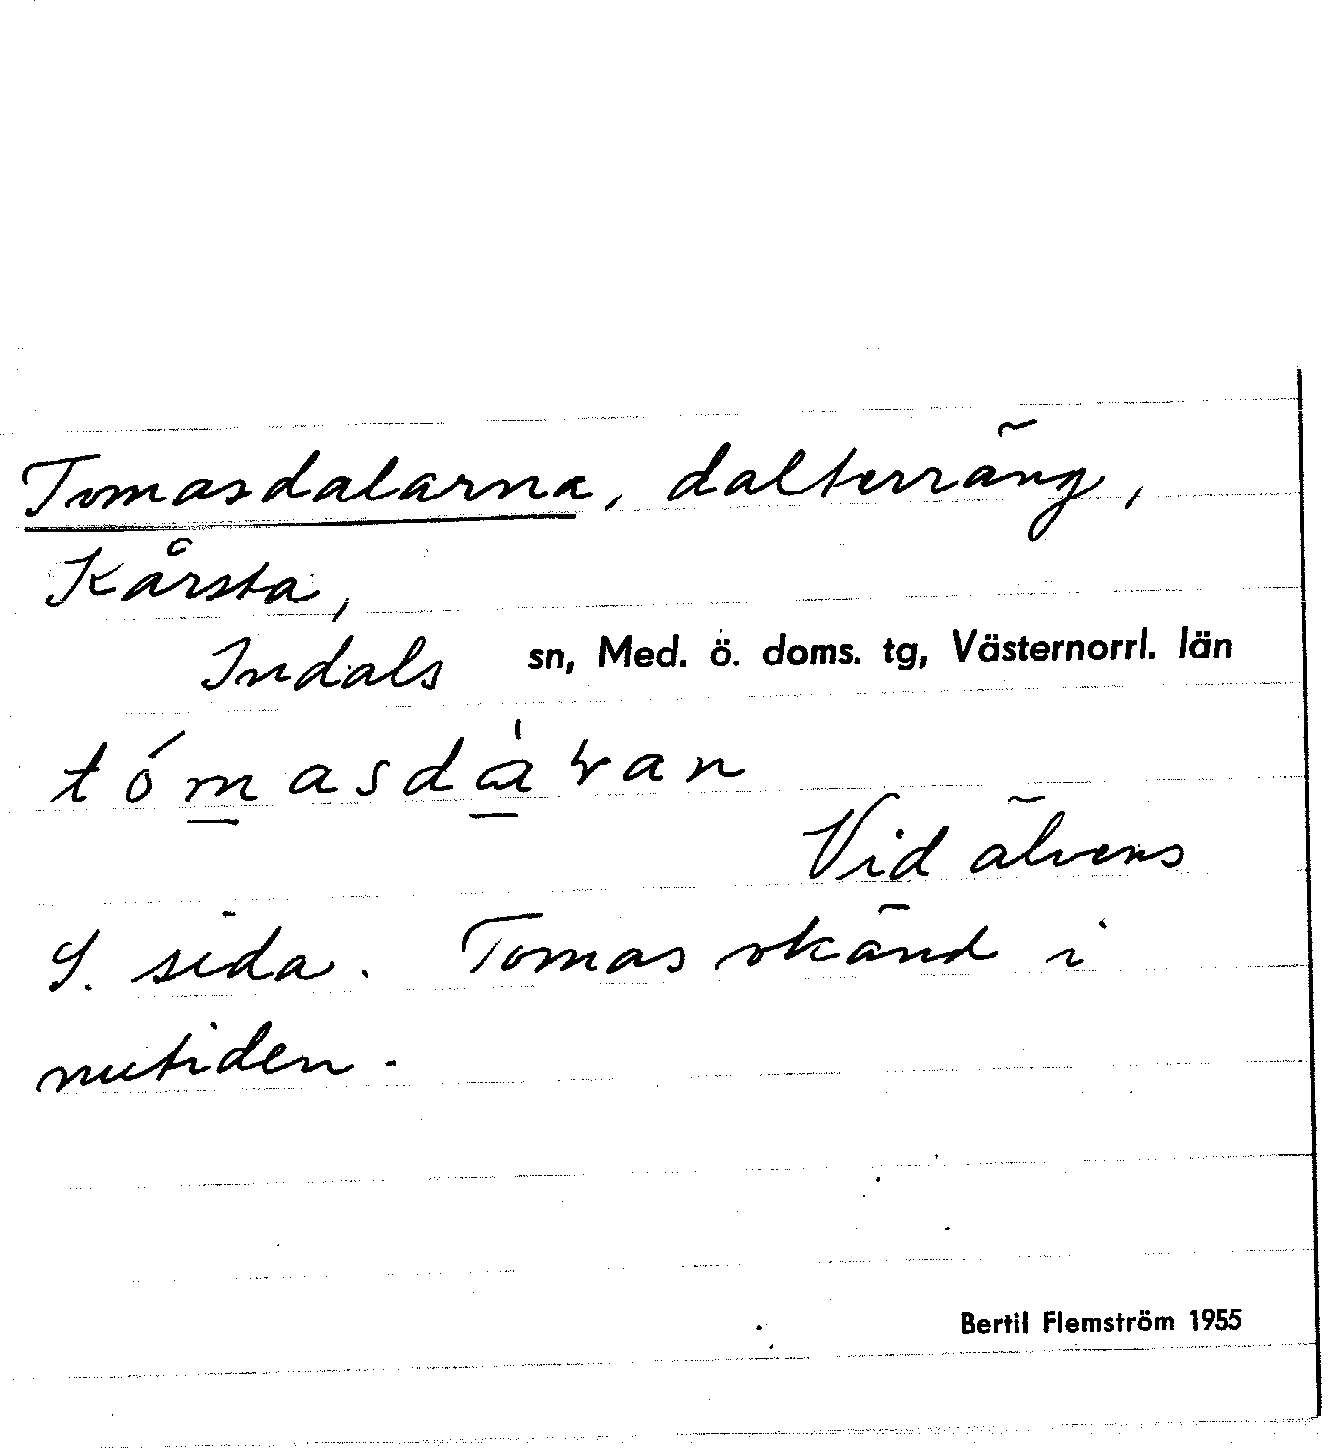 Tomasdalarna, dalterräng,
Kårsta,
Indals sn, Med. ö. doms. tg, Västernorrl. län
tómasdàɽan
Vid älvens
S. sida. Tomas okänd i
nutiden.
Bertil Flemström 1955